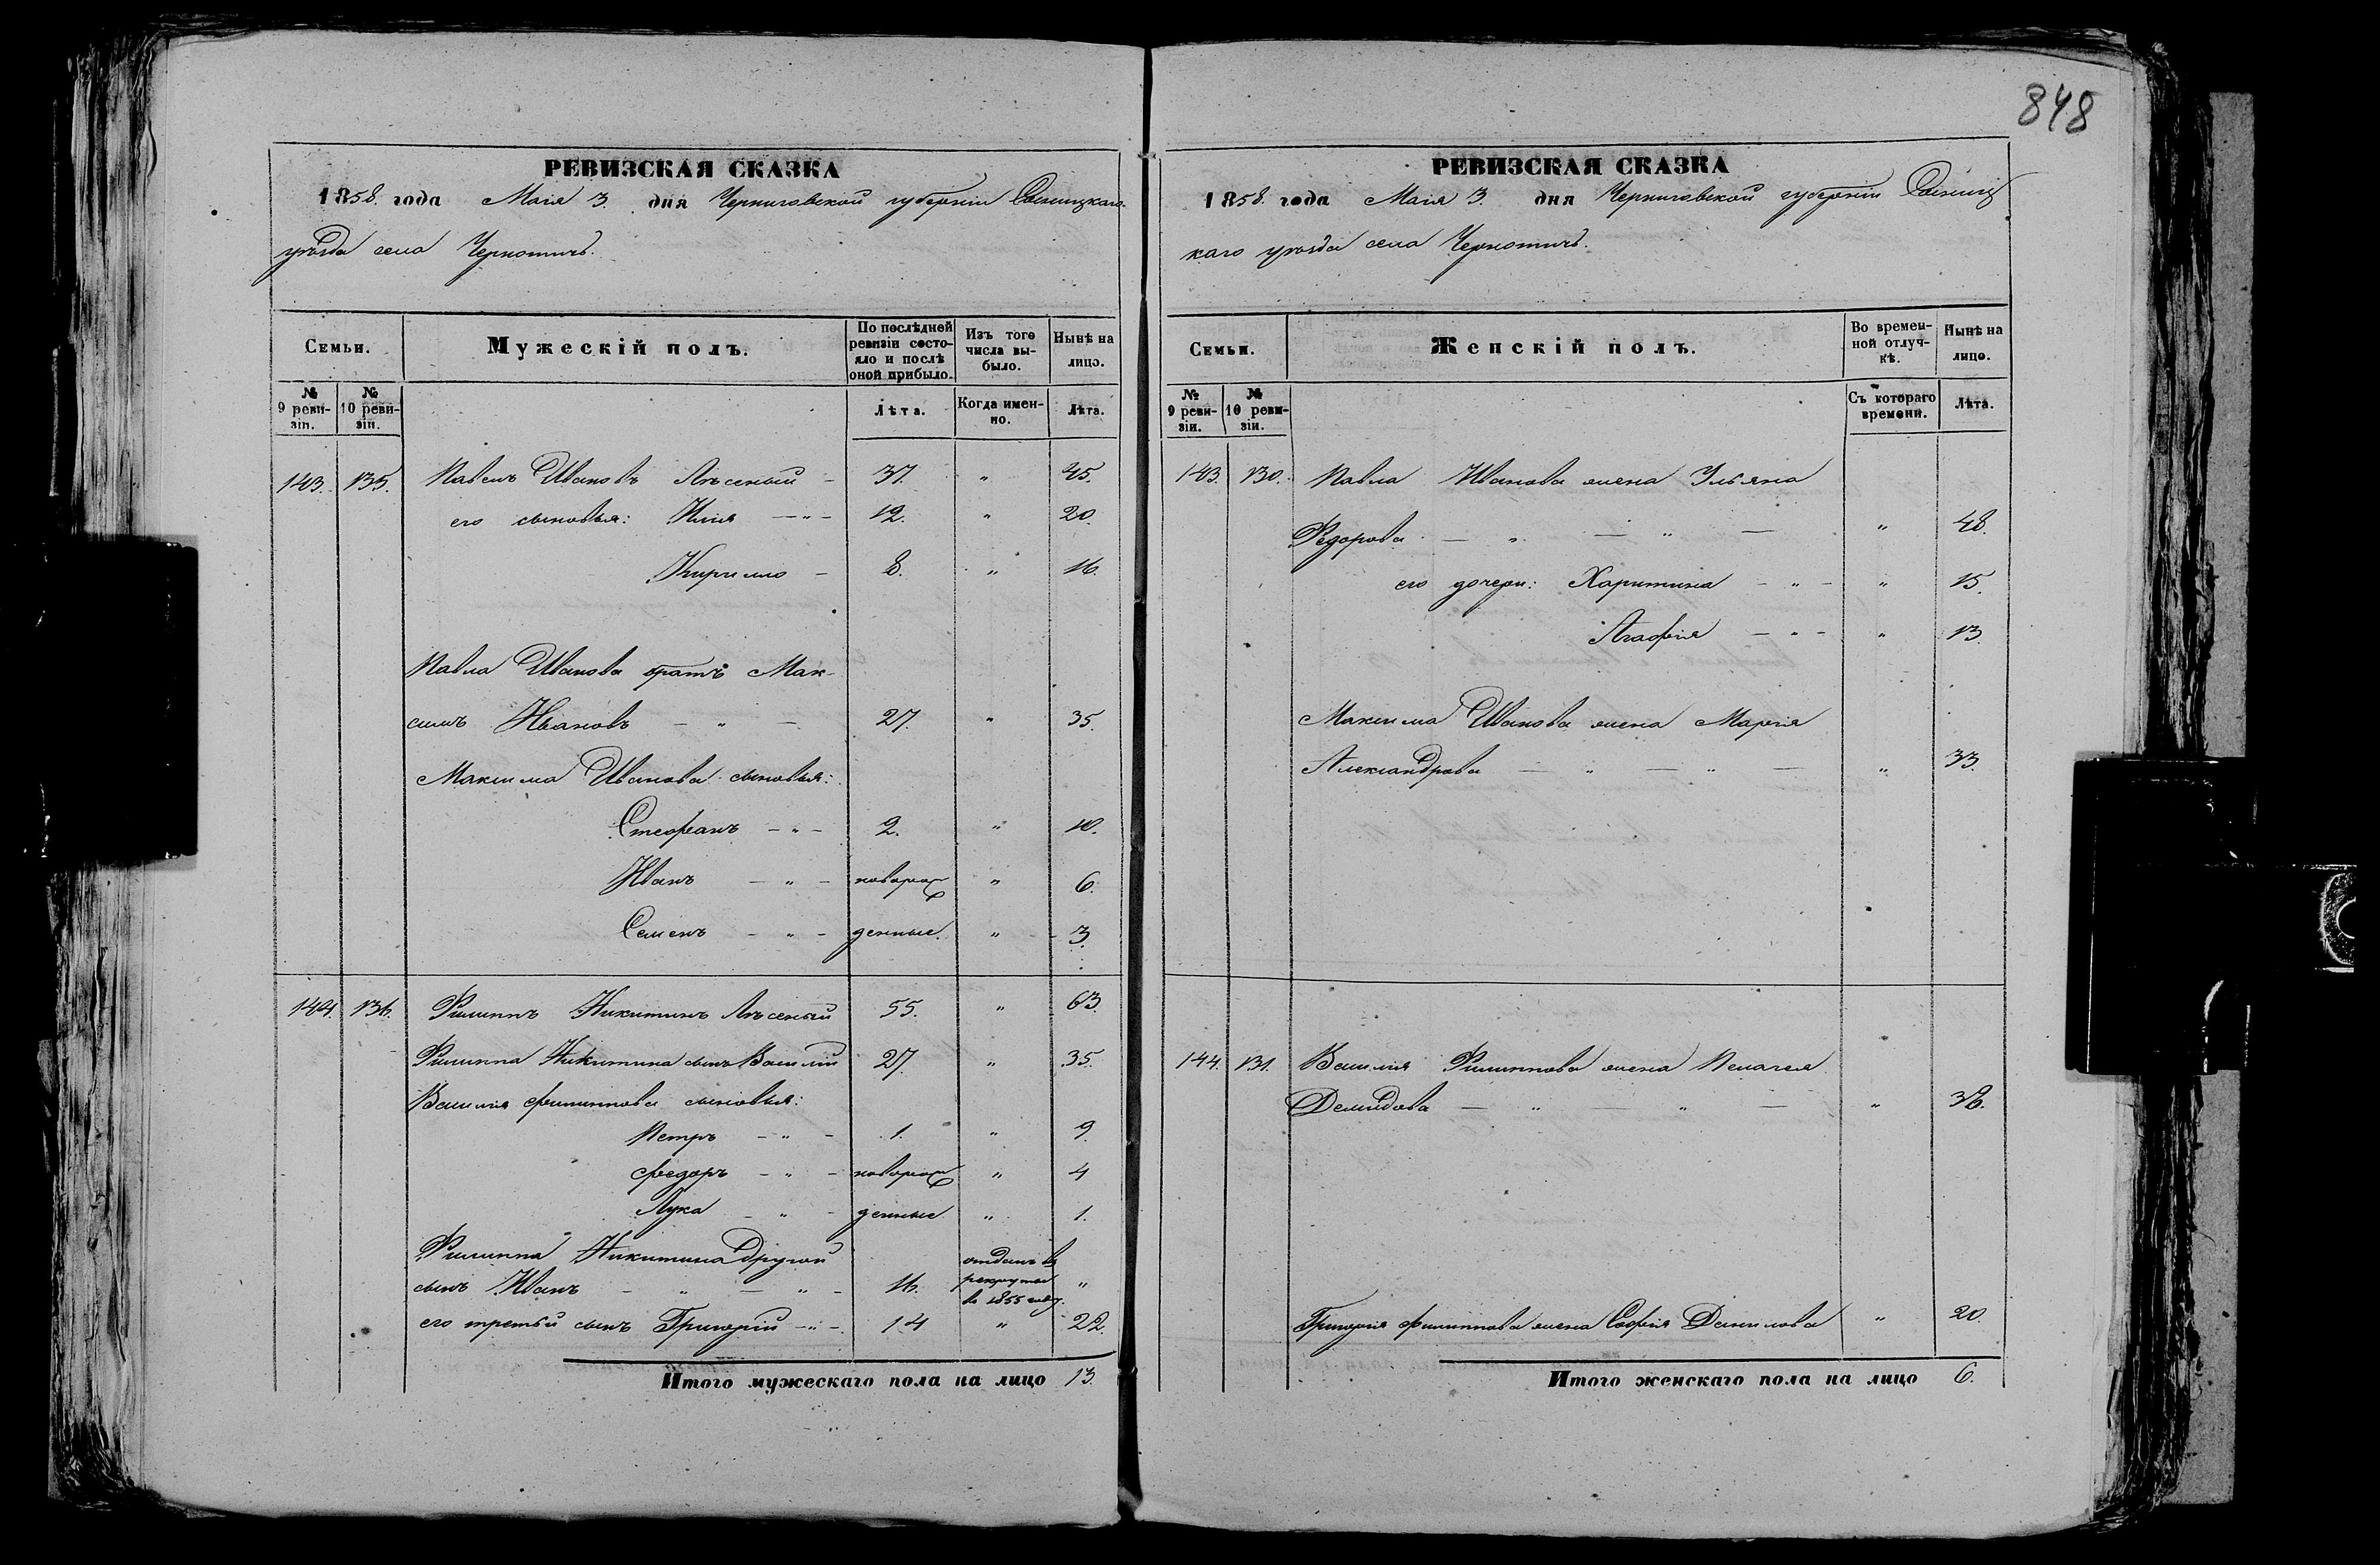 848
РЕВИЗСКАЯ СКАЗКА
1858. года Маія 3. дня Черниговской губерніи Сосницкаго
уѣзда села Чернотичъ.
Семьи.
Мужескій полъ.
По послѣдней ревизіи состояло и послѣ оной прибыло.
Изъ того числа выбыло.
Нынѣ на лицо.
№ 9 ревизіи.
№ 10 ревизіи.
Лѣта.
Когда именно.
Лѣта.
143. 135. Павелъ Ивановъ Лѣсеный - 37. " 45.
его сыновья: Илія — " - 12. " 20.
Кирилло - 8. " 16.
Павла Иванова братъ Мак-
симъ Ивановъ - " - 27. " 35.
Максима Иванова сыновья:
Стефанъ - " - 2. " 10.
Иванъ - " - новорож " 6.
Семенъ - " - денные. " 3.
144. 136. Филиппъ Никитинъ Лѣсеный 55. " 63.
Филиппа Никитина сынъ Василій 27. " 35.
Василія Филиппова сыновья:
Петръ - " - 1. " 9.
Федоръ - " - новорож " 4
Лука - " - денные " 1.
Филиппа Никитина другой
сынъ Иванъ - " - " - 16. отданъ въ рекруты въ 1855 году. "
его третьй сынъ Григорій - " - 14 " 22.
Итого мужескаго пола на лицо 13.
РЕВИЗСКАЯ СКАЗКА
1858. года Маія 3. дня Черниговской губерніи Сосниц
каго уѣзда села Чернотичъ.
Семьи.
Женскій полъ.
Во временной отлучкѣ.
Нынѣ на лицо.
№ 9 ревизіи.
№ 10 ревизіи.
Съ котораго времени.
Лѣта.
143. 130. Павла Иванова жена Ульяна
Федорова — " — " — " 48.
его дочери: Харитина - " - " 15.
Агафія - " - " 13.
Максима Иванова жена Марія
Александрова — " — " — " 33.
144. 131. Василія Филиппова жена Пелагея
Демидова — " — " — " 38.
Григорія Филиппова жена Софія Данилова " 20.
Итого женскаго пола на лицо 6.